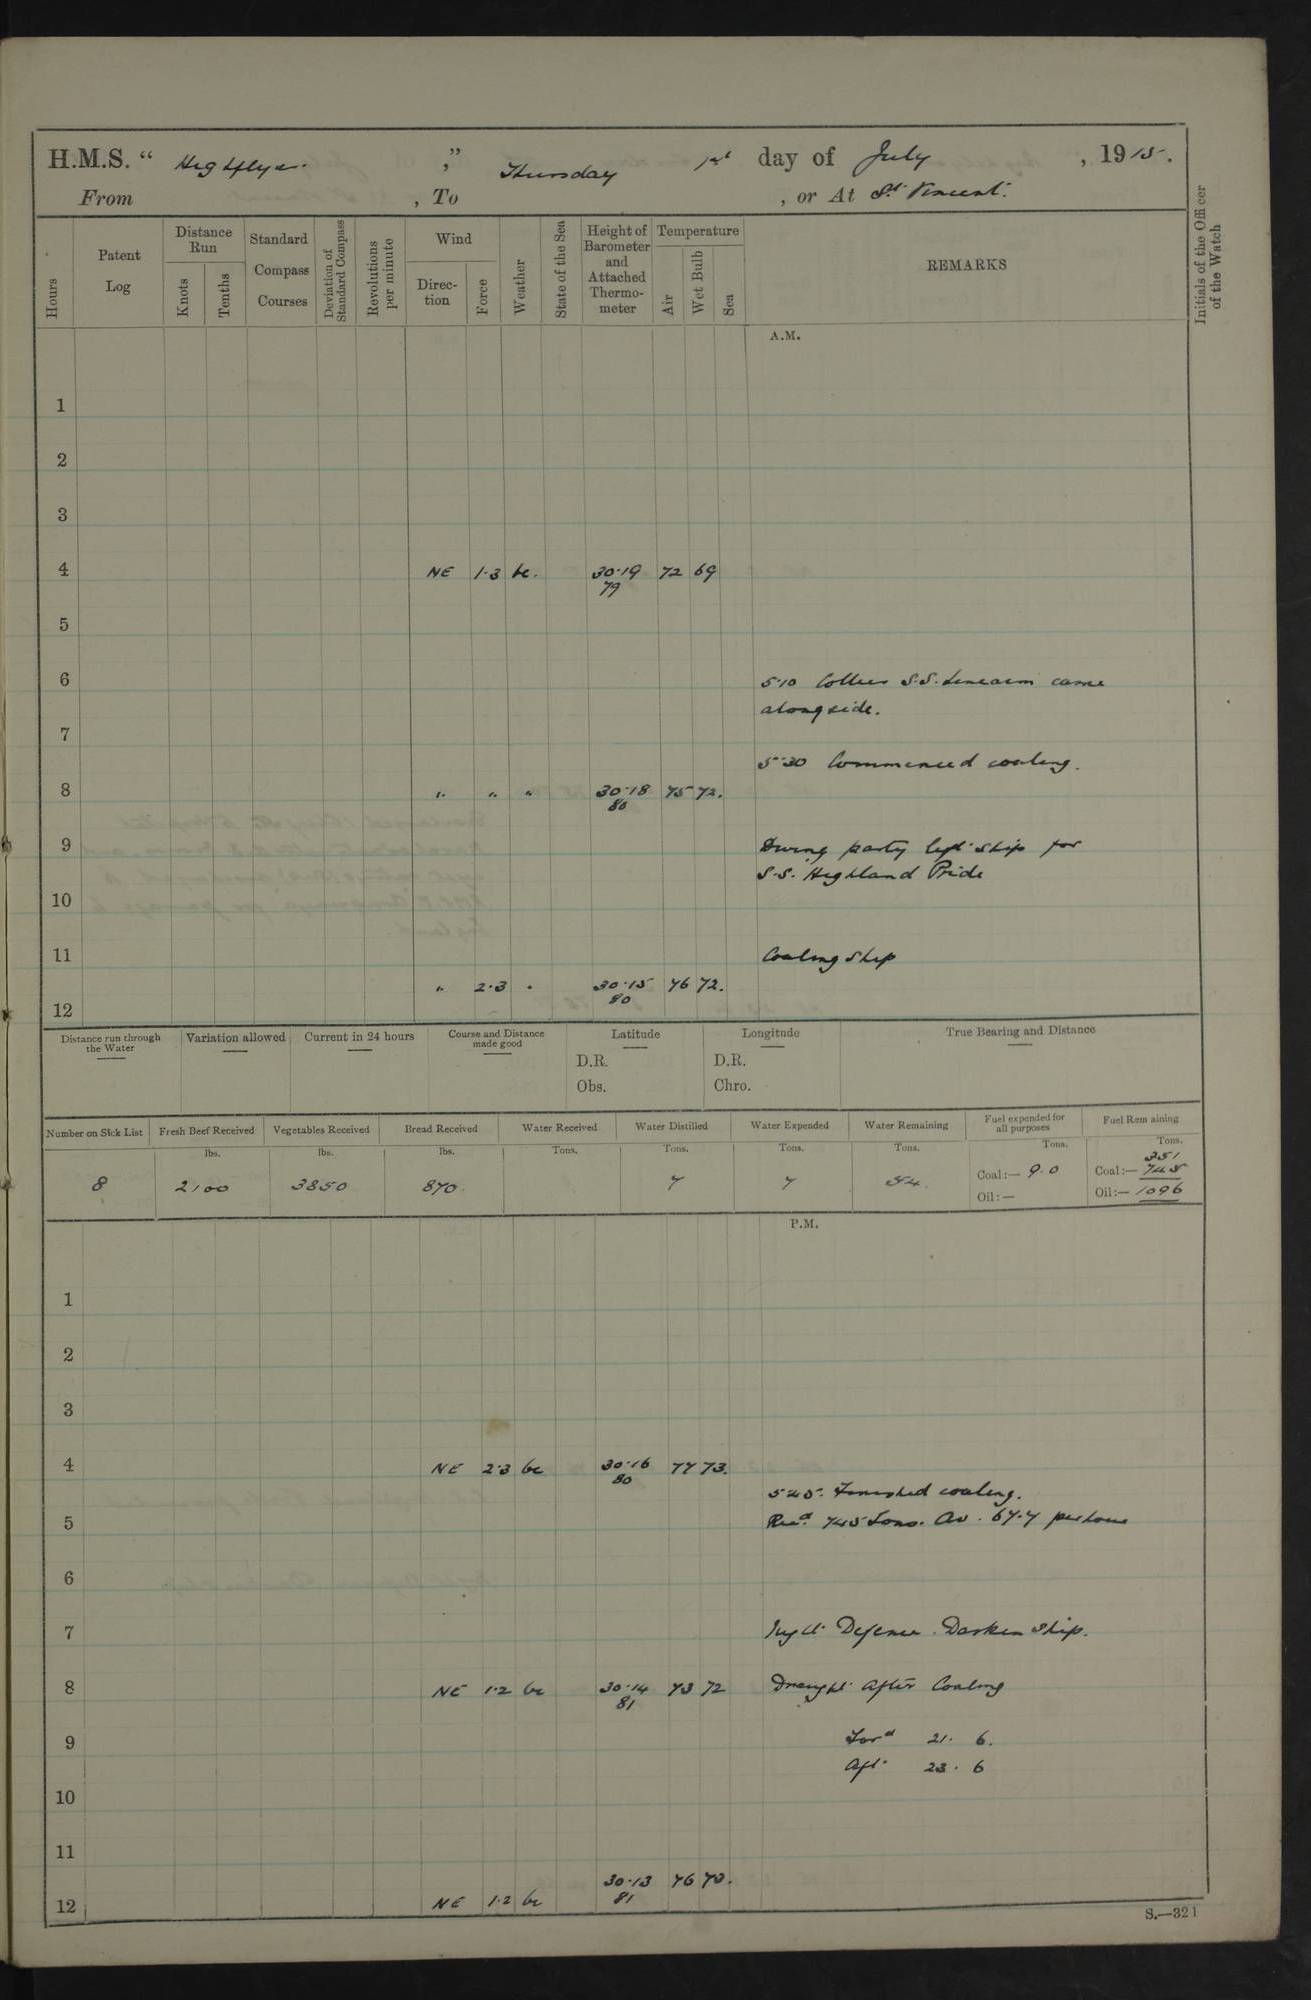 H.M.S. “ Highflyer. ,” Thursday 1st day of July , 1915.
From , To , or At St. Vincent.
Hours
Patent Log
Distance Run
Knots
Tenths
Standard Compass Courses
Deviation of Standard Compass
Revolutions per minute
Wind
Direc-tion
Force
Weather
State of the Sea
Height of Barometer and Attached Thermo-meter
Temperature
Air
Wet Bulb
Sea
REMARKS
Initials of the Officer of the Watch
A.M.
1
2
3
4 NE 1·3 bc. 30·19 72 69
79
5
6 5·10 Collier S.S. came
alongside.
7
5·30 Commenced coaling.
8 " " " 30·18 75 72.
80
9 Diving party left ship for
S.S. Highland Pride
10
11 Coaling Ship
" 2·3 " 30·15 76 72.
80
12
Distance run through the Water
Variation allowed
Current in 24 hours
Course and Distance made good
Latitude
D.R.
Obs.
Longitude
D.R.
Chro.
True Bearing and Distance
Number on Sick List Fresh Beef Received Vegetables Received Bread Received Water Received Water Distilled Water Expended Water Remaining Fuel expended for all purposes Fuel Remaining
lbs. lbs. lbs. Tons. Tons. Tons. Tons. Tons. Tons.
351
8 2100 3850 870 7 7 54. Coal:— 9.0 Coal:— 745
Oil:— Oil:— 1096
P.M.
1
2
3
4 NE 2·3 bc 30·16 77 73.
80
5·45. Finished coaling.
5 Recd. 745 tons. Av. 67.7 per hour
6
7 Night Defence. Darken Ship.
8 NE 1·2 bc 30·14 73 72 Draught After Coaling
81
9 Ford 21. 6.
Aft. 23. 6
10
11
30·13 76 70.
12 NE 1·2 bc 81
S.—321